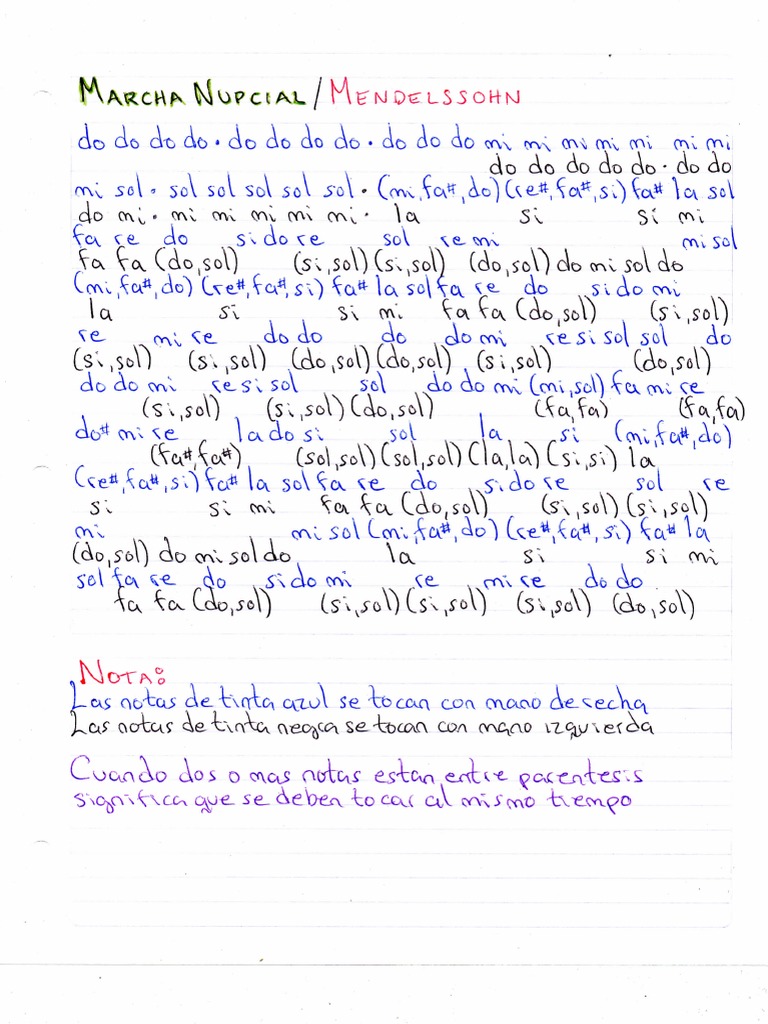 MARCHA NUPCIAL/MENDELSSOHN
do do do do · do do do do · do do do mi mi mi mi mi mi mi
do do do do do · do do
mi sol · sol sol sol sol sol · (mi,fa#,do)(re#,fa#,si) fa# la sol
do mi · mi mi mi mi mi · la si si mi
fa re do si do re sol re mi mi sol
fa fa (do,sol) (si,sol)(si,sol) (do,sol) do mi sol do
(mi,fa#,do) (re#,fa#,si) fa# la sol fa re do si do mi
la si si mi fa fa (do,sol) (si,sol)
re mi re do do do do mi re si sol sol do
(si,sol) (si,sol) (do,sol)(do,sol) (si,sol) (do,sol)
do do mi re si sol sol do do mi (mi,sol) fa mi re
(si,sol) (si,sol)(do,sol) (fa,fa) (fa,fa)
do# mi re la do si sol la si (mi,fa#,do)
(fa#,fa#) (sol,sol)(sol,sol)(la,la)(si,si) la
(re#,fa#,si) fa# la sol fa re do si do re sol re
si si mi fa fa (do,sol) (si,sol)(si,sol)
mi mi sol (mi,fa#,do) (re#,fa#,si) fa# la
(do,sol) do mi sol do la si si mi
sol fa re do si do mi re mi re do do
fa fa (do,sol) (si,sol)(si,sol) (si,sol) (do,sol)
NOTA:
Las notas de tinta azul se tocan con mano derecha
Las notas de tinta negra se tocan con mano izquierda
Cuando dos o mas notas estan entre parentesis
significa que se deben tocar al mismo tiempo